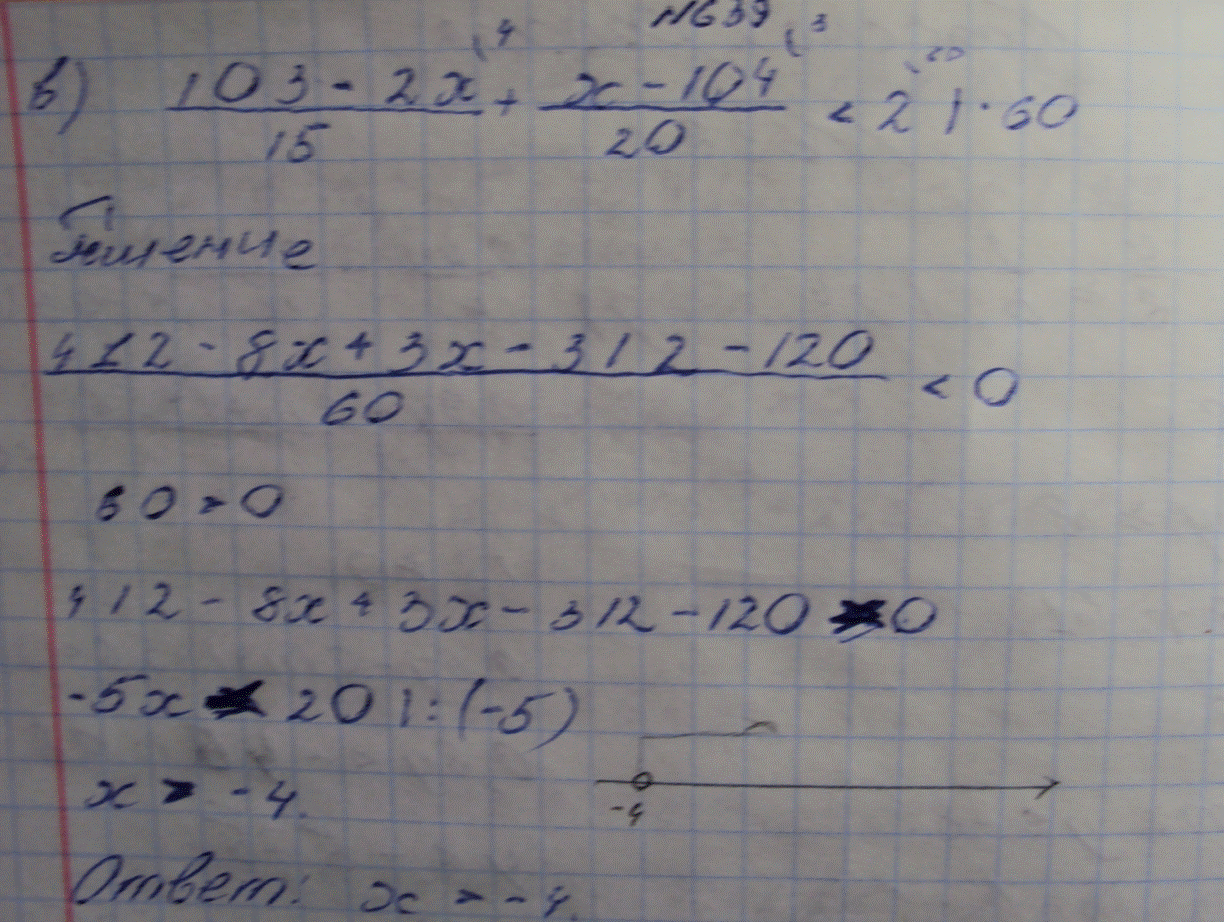 №639
в) (103 - 2x)/15 ⁴ + (x - 104)/20 ³ < 2 ⁶⁰ | · 60
Решение
(412 - 8x + 3x - 312 - 120)/60 < 0
60 > 0
412 - 8x + 3x - 312 - 120 < 0
-5x < 20 | : (-5)
x > -4.
-4
Ответ: x > -4.